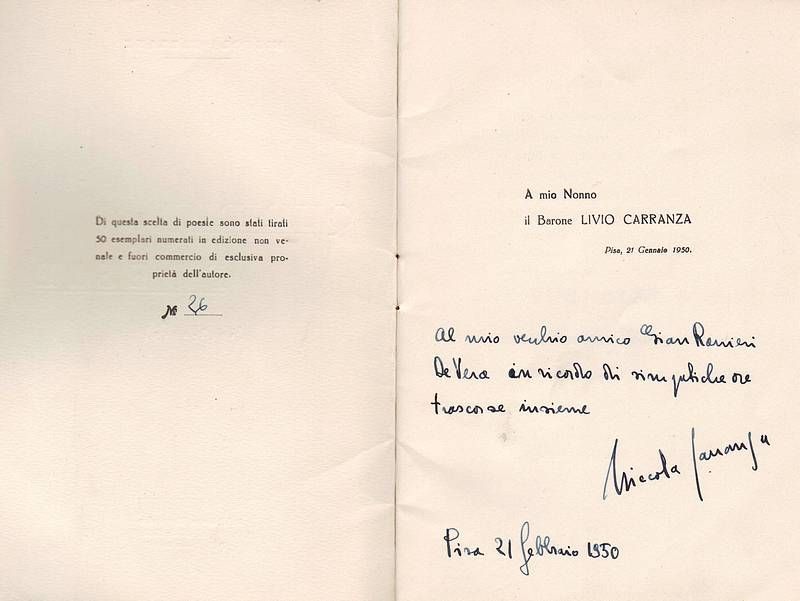 Di questa scelta di poesie sono stati tirati
50 esemplari numerati in edizione non ve-
nale e fuori commercio di esclusiva pro-
prietà dell'autore.
№ 26
A mio Nonno
il Barone LIVIO CARRANZA
Pisa, 21 Gennaio 1950.
Al mio vecchio amico Gian Ranieri
De Vera in ricordo di simpatiche ore
trascorse insieme
Niccola Carranza
Pisa 21 febbraio 1950